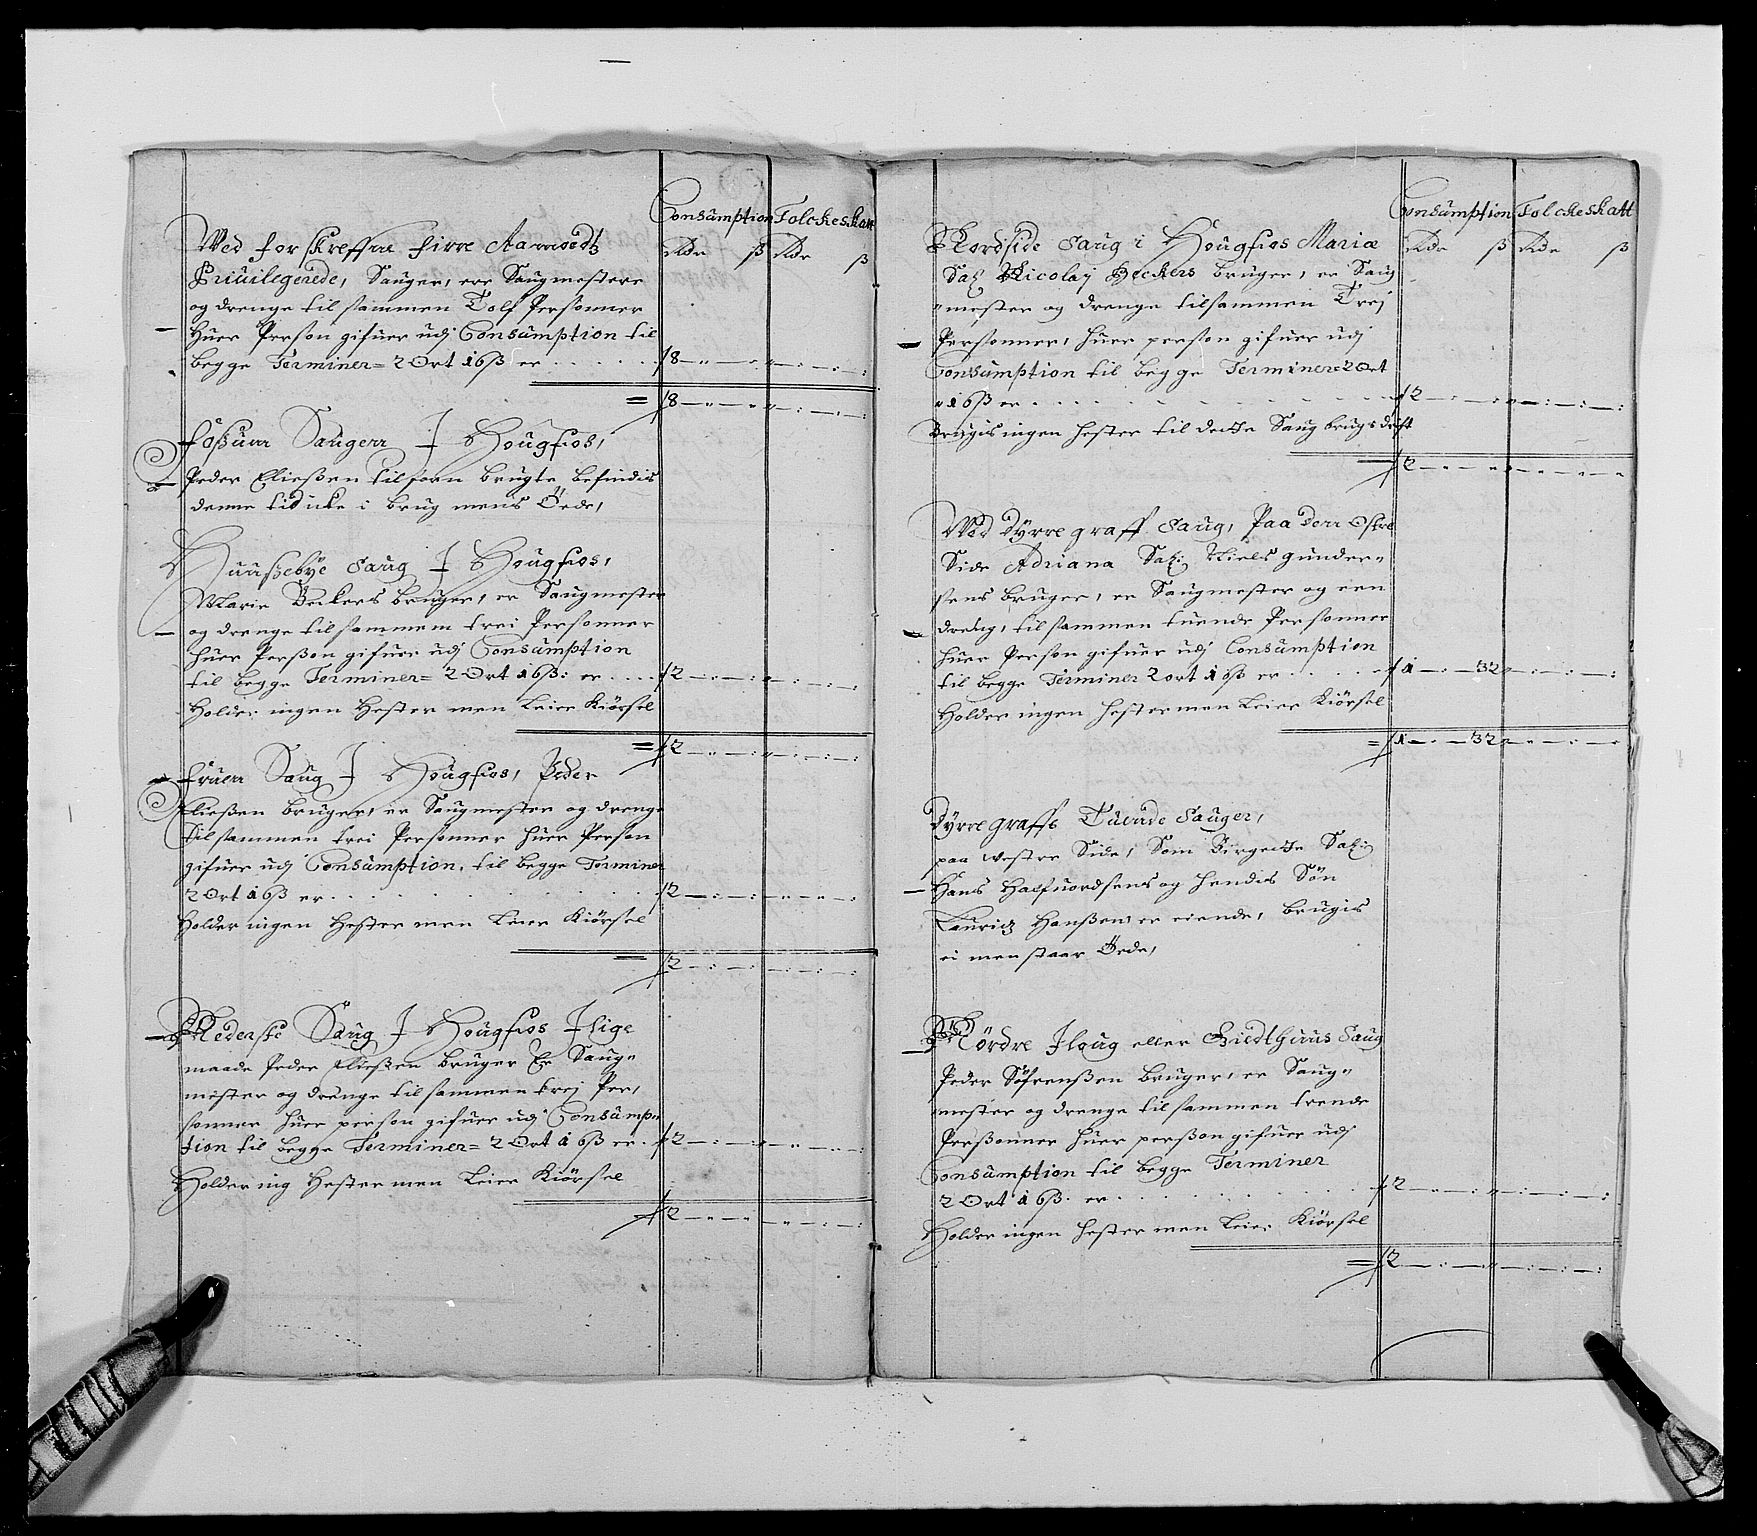 Consumption Folckeskatt
Rdr ß Rdr ß
Wed forskreffne firre Aamodtz
Priuilegerede, Sauger, ere Saugmestere
og drenge til sammen Tolf Personner
Huer Person gifuer udj Consumption til
begge Terminer = 2 Ort 16 ß er . . . . . 8
8
Foßum Saugerr I Hougfios,
Peder Eließen tilforn brugte befindis
denne tid icke i brug mens Öede,
Huußebÿe Saug I Hougfios,
Marie Beckers bruger, er Saugmester
og drenge til sammem trei Personner
huer Perßon gifuer udj Consumption
til begge Terminer = 2 Ort 16 ß: er . . . . 2
Holder ingen Hester men Leier Kiörsel
2
Fruen Saug I Hougfios, Peder
Eließen bruger, er Saugmester og drenge
tilsammen trei Personner huer Person
gifuer udj Consumption, til begge Terminer
2 Ort 16 ß er . . . . . . 2
Holder ingen Hester men Leier Kiörsel
2
Nederste Saug I Hougfios Ilige
maade Peder Eließen bruger Er Saug=
mester og drenge til sammen trej Per,
sonner huer person gifuer udj Consump=
tion til begge Terminer = 2 Ort 16 ß er . 2
Holder ing Hester men Leier Kiörsel
2
Consumption Folckeskatt
Rdr ß Rdr ß
Nordside Saug i Hougfios Mariæ
Sal Nicolaj Beckers bruger, er Saug
mester og drenge tilsammen Trej
Personner, huer person gifuer udj
Consumption til begge Terminer = 2 Ort
16 ß er . . . . . . . . 2
Brugis ingen hester til dette Saug brugs drift
2
Wed Dÿrre graff Saug, Paa denn Östre
Side Adriana Sal: Niels gunder=
sens bruger, er Saugmester og een
dreng, tilsammen tuende Personner
huer Person gifuer udj Consumption
til begge Terminer 2 ort 16 ß er . . . . . 1 32
Holder ingen hester men Leier Kiörsel
1 32
Dÿrre graffs Tuende Sauger,
paa westre Side, Som Birgette Sal:
Hans Halfuordsens og hendis Sön
Lauritz Hanßen er eiende, brugis
ei men staar Öede,
Nördre Ilaug eller Giedthuus Saug
Peder Söfrenßen bruger, er Saug=
mester og drenge til sammen trende
Perßonner huer perßon gifuer udj
Consumption til begge Terminer
2 Ort 16 ß. er . . . . . . . . 2
Holder ingen hester men Leier Kiörsel
2